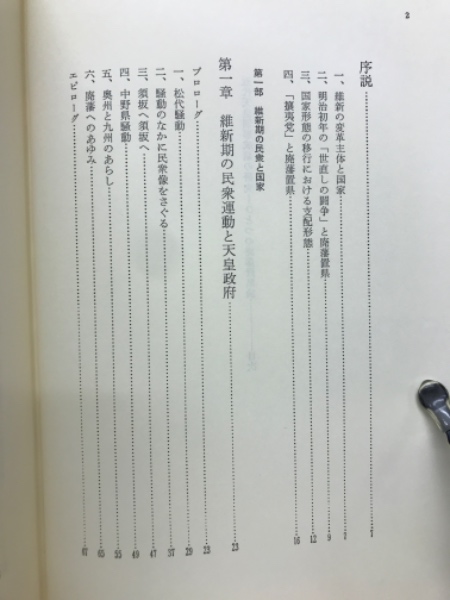 2
序説……1
一、維新の変革主体と国家……2
二、明治初年の「世直しの闘争」と廃藩置県……9
三、国家形態の移行における支配形態……12
四、「攘夷党」と廃藩置県……16
第一部　維新期の民衆と国家
第一章　維新期の民衆運動と天皇政府……23
プロローグ……23
一、松代騒動……29
二、騒動のなかに民衆像をさぐる……37
三、須坂へ須坂へ……47
四、中野県騒動……49
五、奥州と九州のあらし……55
六、廃藩へのあゆみ……65
エピローグ……67